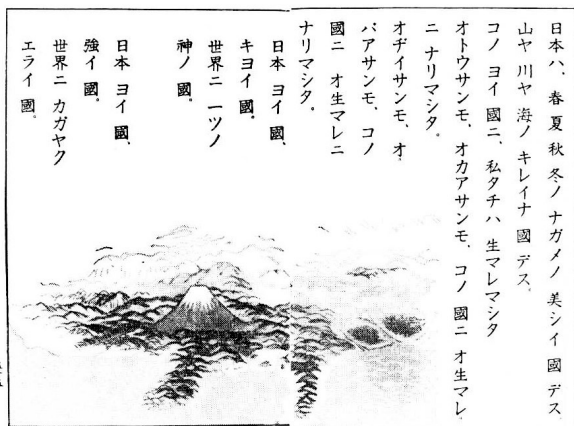 日本ハ、春夏秋冬ノ ナガメノ 美シイ 國デス
山ヤ 川ヤ 海ノ キレイナ 國 デス。
コノ ヨイ 國ニ、私タチハ 生マレマシタ
オトウサンモ、オカアサンモ、コノ 國ニ オ生マレ
ニ ナリマシタ。
オヂイサンモ、オ
バアサンモ、コノ
國ニ オ生マレニ
ナリマシタ。
日本 ヨイ 國、
キヨイ 國。
世界ニ 一ツノ
神ノ 國。
日本 ヨイ 國、
強イ 國。
世界ニ カガヤク
エライ 國。